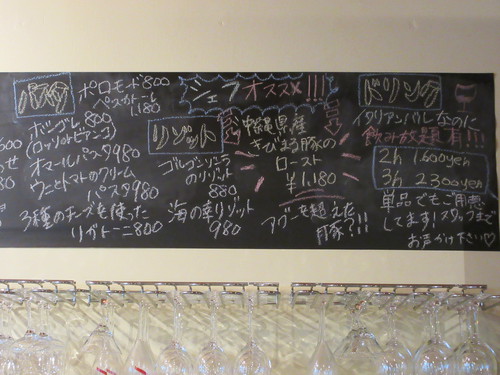 パスタ
ポロモード800
ペスカトーレ
1.180
ボンゴレ 800
(ロッソorビアンコ)
オマールパスタ980
ウニとトマトのクリーム
パスタ980
3種のチーズを使った
リガトーニ800
シェフオススメ!!!
リゾット
ゴルゴンゾーラ
のリゾット
880
海の幸リゾット
980
沖縄県産
きびまる豚の
ロースト
¥1.180
アグーを超えた
豚?!!
ドリンク
イタリアンバルなのに
飲み放題有!!!
2h 1.600yen
3h 2.300yen
単品でもご用意
してます!スタッフまで
お声かけ下さい♡